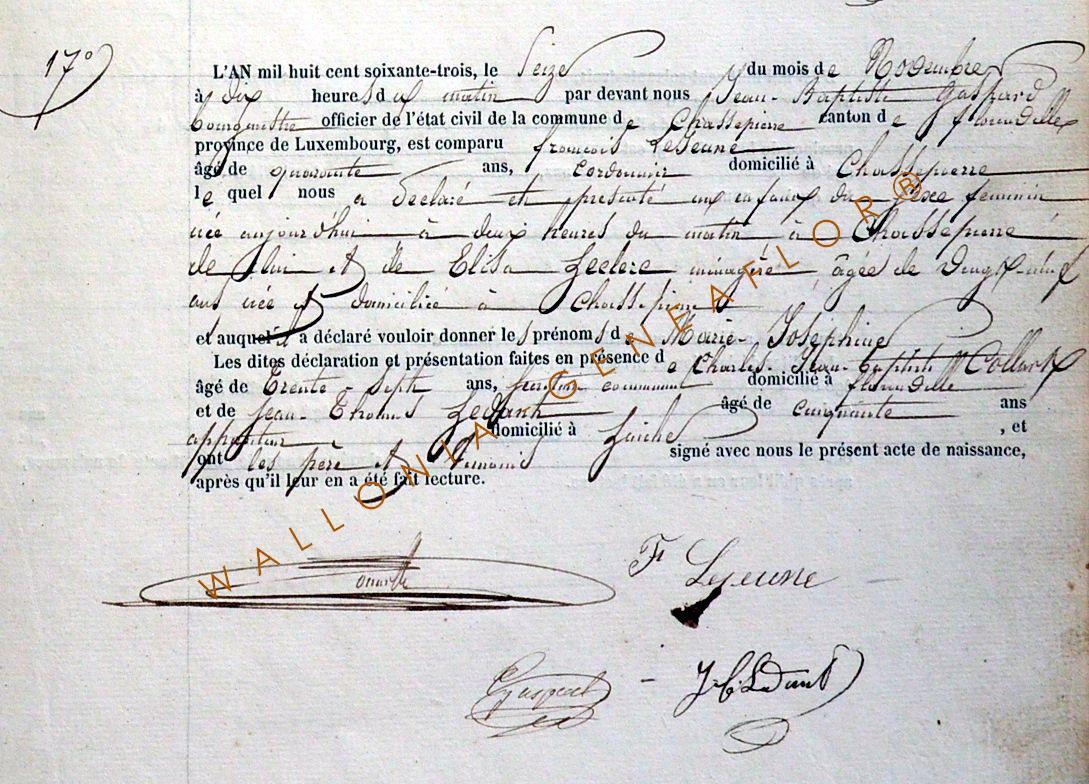 17°
L'AN mil huit cent soixante-trois, le Seize du mois de Novembre
à dix heures du matin par devant nous Jean-Baptiste Gaspard
bourgmestre officier de l'état civil de la commune de Chassepierre canton de florenville
province de Luxembourg, est comparu françois Lejeune
âgé de quarante ans, cordonnier domicilié à Chassepierre
lequel nous a declaré et présenté un enfant du sexe feminin
née aujourd'hui à deux heures du matin à Chassepierre
de lui et de Elisa Leclere ménagère âgée de vingt-neuf
ans née et domiciliée à Chassepierre
et auquel il a déclaré vouloir donner les prénoms de Marie-Joséphine
Les dites déclaration et présentation faites en présence de Charles-Jean-Baptiste Collard
âgé de trente-sept ans, communal domicilié à florenville
et de Jean-Thomas Ledant âgé de cinquante ans
domicilié à Laiche, et
ont les père et témoins signé avec nous le présent acte de naissance,
après qu'il leur en a été fait lecture.
F Lejeune
Gaspard
J. T. Ledant
WALLONIA GENEAFLOR ®